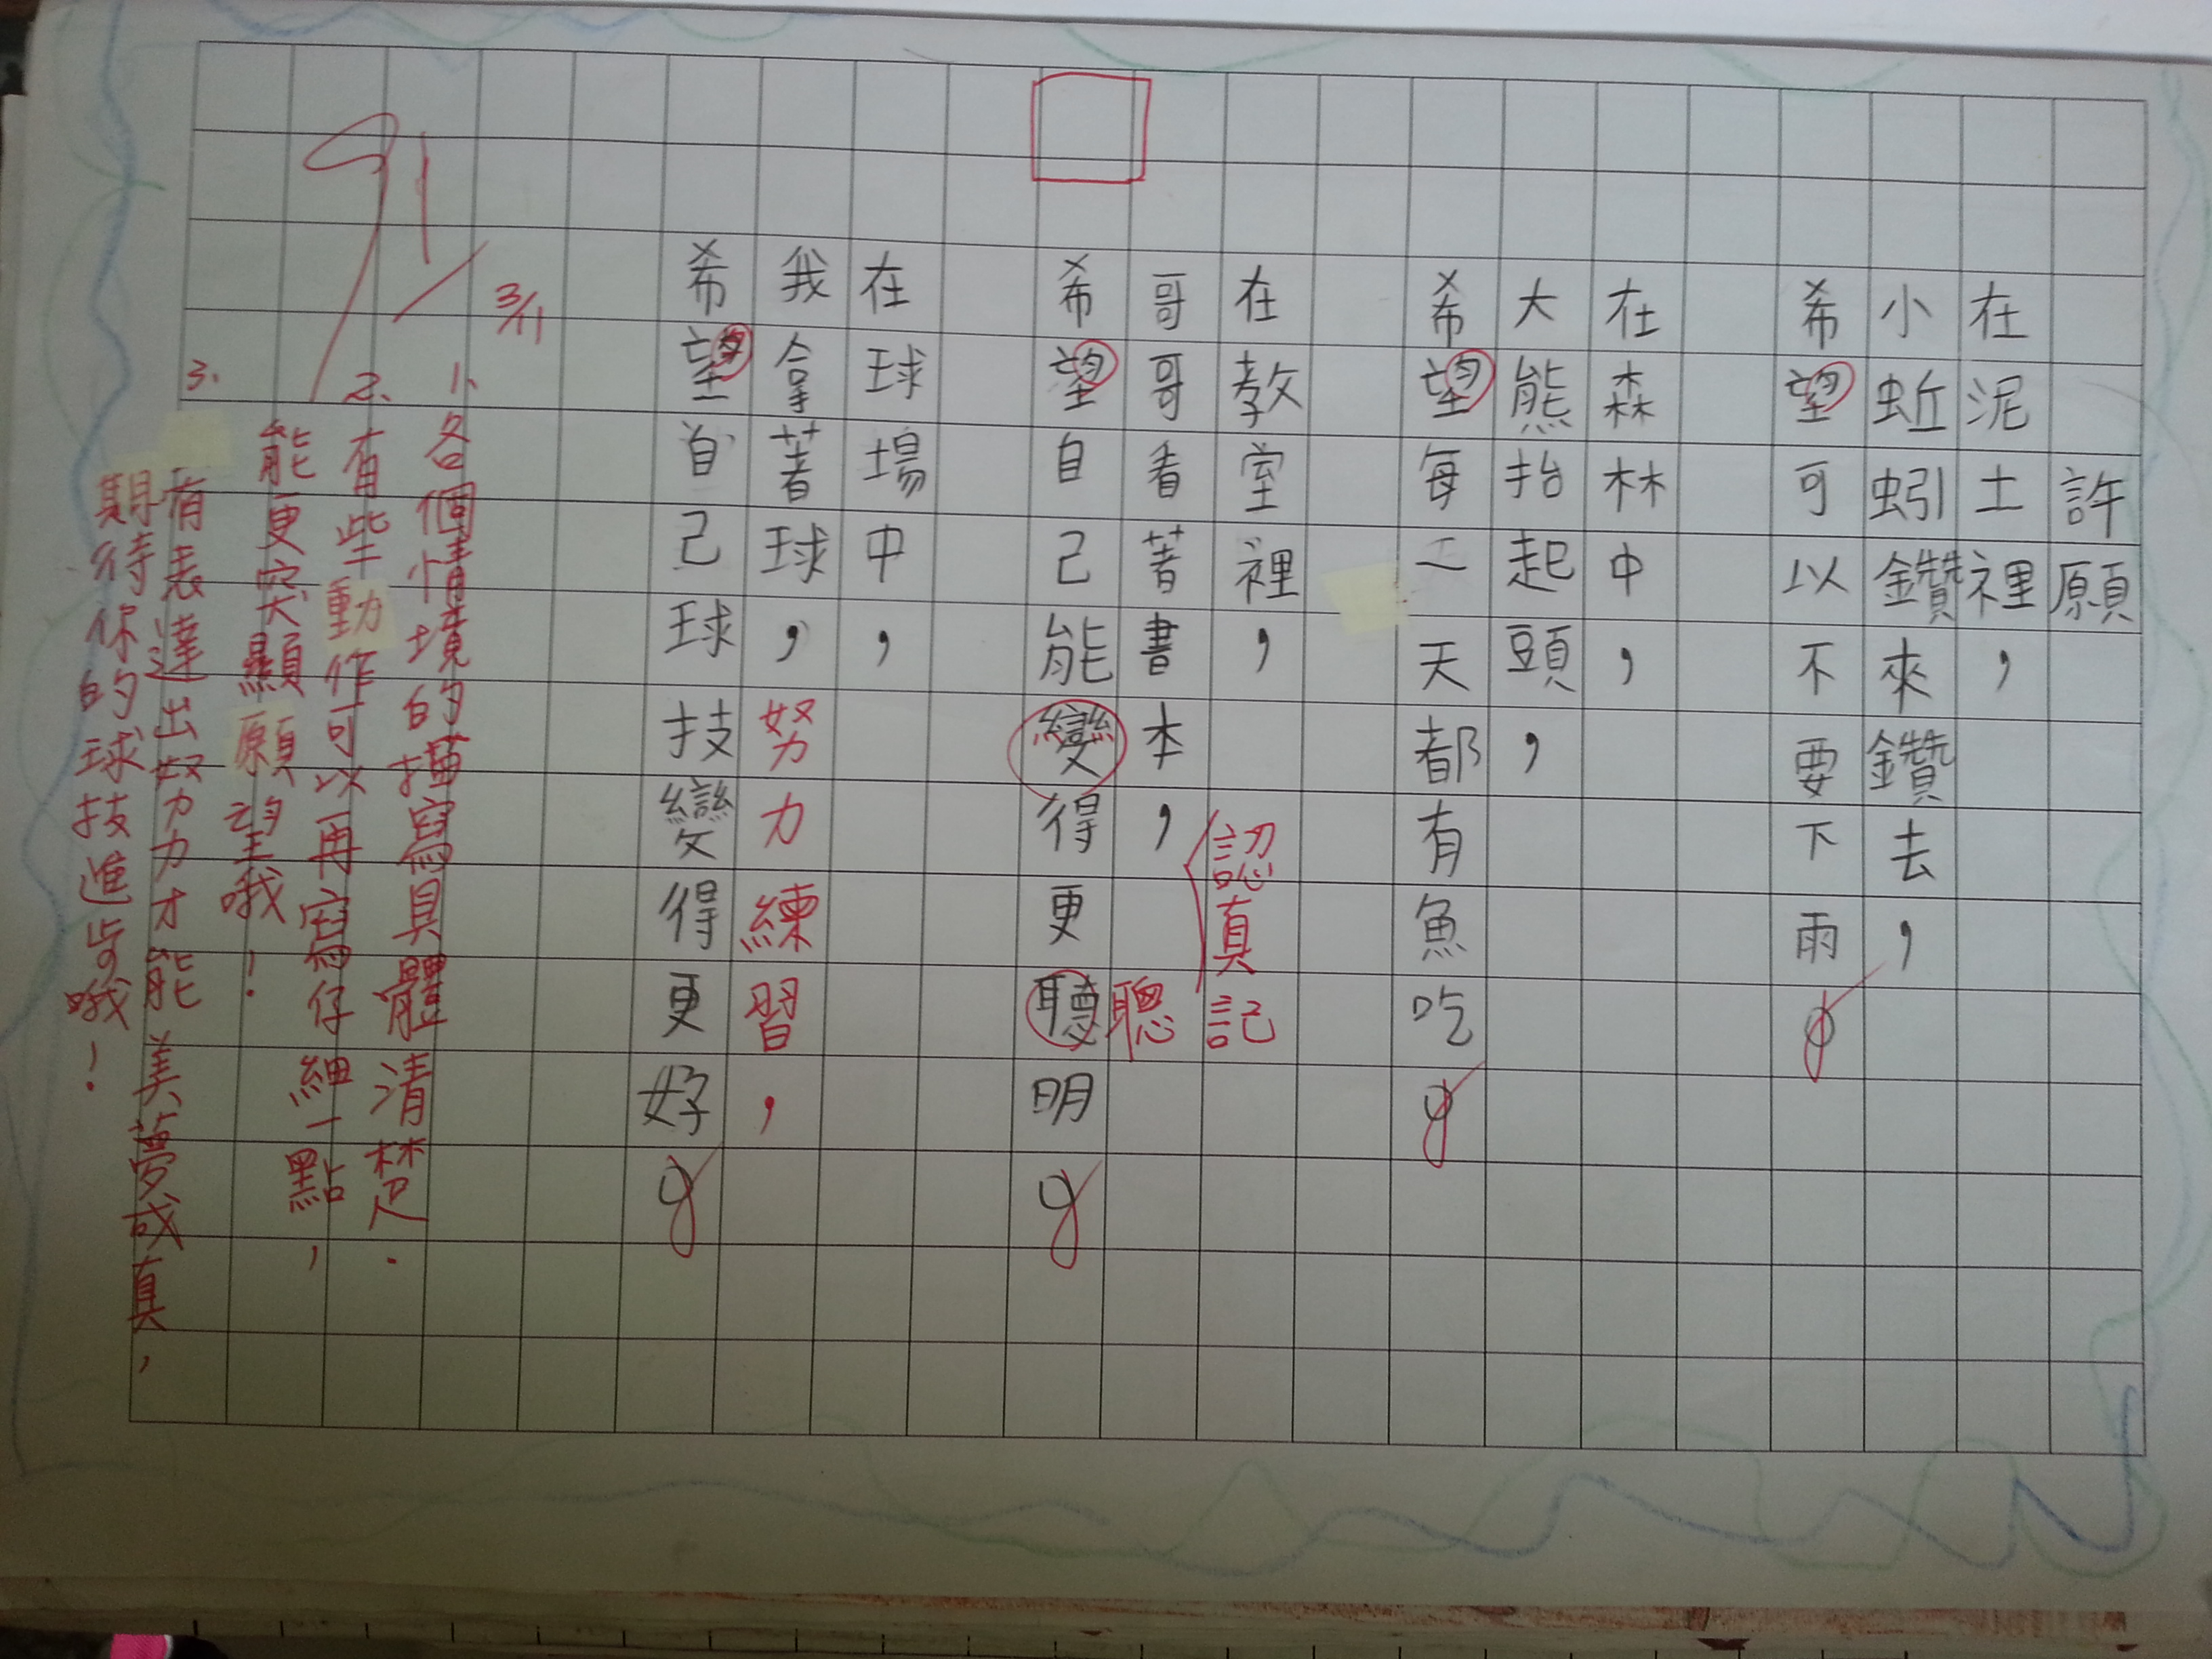 許願
在泥土裡，
小蚯蚓鑽來鑽去，
希望可以不要下雨。
在森林中，
大熊抬起頭，
希望每一天都有魚吃。
在教室裡，
認真記
哥哥看著書本，
聰
希望自己能變得更聽明。
在球場中，
我拿著球，努力練習，
希望自己球技變得更好。
3/11
91
1、各個情境的描寫具體清楚．
2、有些動作可以再寫仔細一點，
能更突顯願望哦！
3、有表達出努力才能美夢成真，
期待你的球技進步哦！